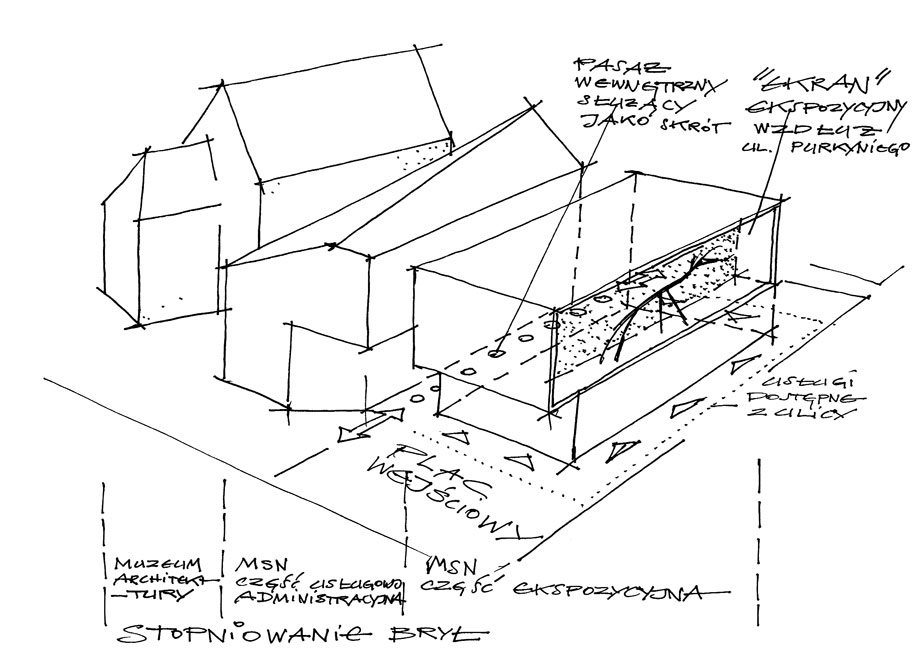 PASAŻ
WEWNĘTRZNY
SŁUŻĄCY
JAKO SKRÓT
"EKRAN"
EKSPOZYCYJNY
WZDŁUŻ
UL. PURKYNIEGO
USŁUGI
DOSTĘPNE
Z ULICY
PLAC
WEJŚCIOWY
MUZEUM
ARCHITEK-
-TURY
MSN
CZĘŚĆ USŁUGOWO
ADMINISTRACYJNA
MSN
CZĘŚĆ EKSPOZYCYJNA
STOPNIOWANIE BRYŁ